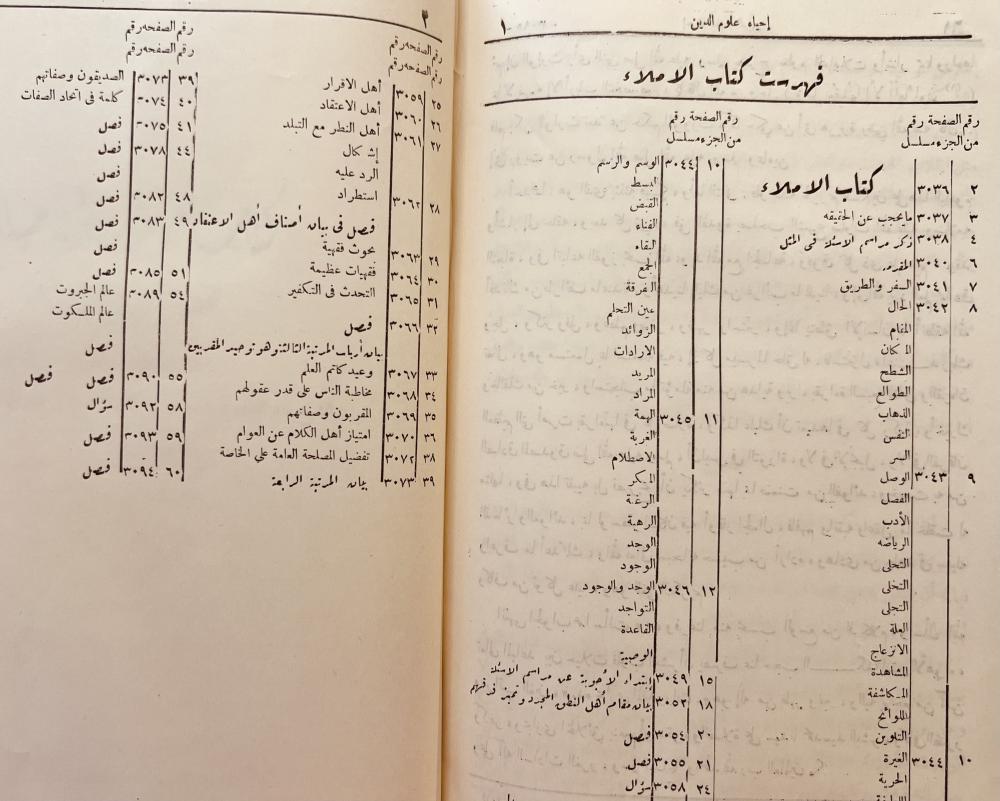 ١ إحياء علوم الدين
فهرست كتاب الاملاء
رقم الصفحة رقم
من الجزء مسلسل
٢ ٣٠٣٦ كتاب الاملاء
٣ ٣٠٣٧ ما يحجب عن الحقيقه
٤ ٣٠٣٨ ذكر مراسم الاسئلة فى المثل
٦ ٣٠٤٠ المقدمه
٧ ٣٠٤١ السفر والطريق
٨ ٣٠٤٢ الحال
المقام
المكان
الشطح
الطوالع
الذهاب
النفس
السر
٩ ٣٠٤٣ الوصل
الفصل
الأدب
الرياضه
التحلى
التخلى
التجلى
العلة
الانزعاج
المشاهدة
المكاشفة
اللوائح
التلوين
١٠ ٣٠٤٤ الغيرة
الحرية
رقم الصفحة رقم
من الجزء مسلسل
١٠ ٣٠٤٤ الوسم والرسم
البسط
القبض
الفناء
البقاء
الجمع
التفرقة
عين التحلم
الزوائد
الارادات
المريد
المراد
١١ ٣٠٤٥ الهمة
الغربة
الاصطلام
المكر
الرغبة
الرهبة
الوجد
الوجود
١٢ ٣٠٤٦ الوجد والوجود
التواجد
القاعدة
١٥ ٣٠٤٩ ابتداء الأجوبة عن مراسم الاسئلة
١٨ ٣٠٥٢ بيان مقام أهل النطق المجرد وتميز فرقهم
٢٠ ٣٠٥٤ فصل
٢١ ٣٠٥٥ فصل
٢٤ ٣٠٥٨ سؤال
رقم الصفحه رقم
رقم الصفحه رقم
٢٥ ٣٠٥٩ أهل الاقرار
٢٦ ٣٠٦٠ أهل الاعتقاد
٢٧ ٣٠٦١ أهل النظر مع التبلد
إشكال
الرد عليه
٢٨ ٣٠٦٢ استطراد
فصل فى بيان أصناف أهل الاعتقاد
٢٩ ٣٠٦٣ بحوث فقهية
٣٠ ٣٠٦٤ فقهيات عظيمة
٣١ ٣٠٦٥ التحدث فى التكفير
٣٢ ٣٠٦٦ فصل
بيان أرباب المرتبة الثالثة وهو توحيد المقربين
٣٣ ٣٠٦٧ وعيد كاتم العلم
٣٤ ٣٠٦٨ مخاطبة الناس على قدر عقولهم
٣٥ ٣٠٦٩ المقربون وصفاتهم
٣٦ ٣٠٧٠ امتياز أهل الكلام عن العوام
٣٨ ٣٠٧٢ تفضيل المصلحة العامة علي الخاصة
٣٩ ٣٠٧٣ بيان المرتبة الرابعة
رقم الصفحه رقم
رقم الصفحه رقم
٣٩ ٣٠٧٣ الصديقون وصفاتهم
٤٠ ٣٠٧٤ كلمة فى اتحاد الصفات
٤١ ٣٠٧٥ فصل
٤٤ ٣٠٧٨ فصل
فصل
٤٨ ٣٠٨٢ فصل
٤٩ ٣٠٨٣ فصل
فصل
٥١ ٣٠٨٥ فصل
٥٤ ٣٠٨٩ عالم الجبروت
عالم الملكوت
فصل
٥٥ ٣٠٩٠ فصل فصل
٥٨ ٣٠٩٢ سؤال
٥٩ ٣٠٩٣ فصل
٦٠ ٣٠٩٤ فصل